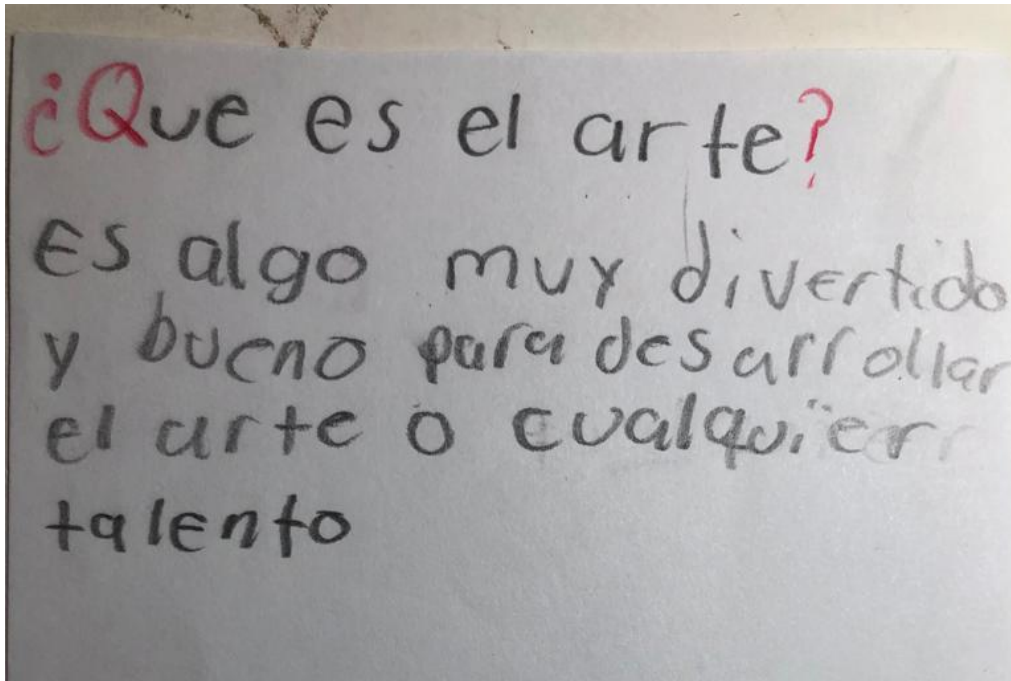 ¿Que es el arte?
Es algo muy divertido
y bueno para desarrollar
el arte o cualquier
talento